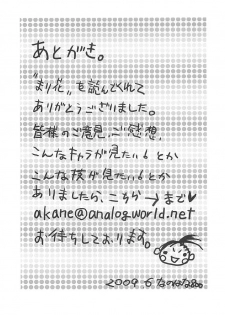 あとがき。
"まり花"を読んでくれて
ありがとうございました。
皆様のご意見、ご感想、
こんなキャラが見たい!とか
こんな技が見たい!とか
ありましたら、こちら→まで♥
akane@analogworld.net
お待ちしております。
2009.6